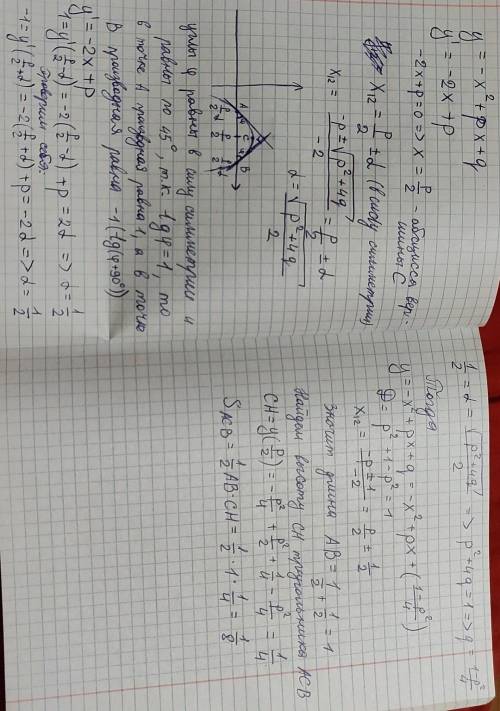 y = -x² + px + q
y' = -2x + p
-2x + p = 0 => x = p/2 - абсцисса вер-
шины C
x₁₂ = p/2 ± d (в силу симметрии)
x₁₂ = (-p ± √(p² + 4q))/-2 = p/2 ± d
d = √(p² + 4q)/2
A C B
p/2 - d p/2 p/2 + d
углы φ равны в силу симметрии и
равны по 45°, т.к. tg φ = 1, то
в точке A производная равна 1, а в точке
B производная равна -1 (tg(φ+90°))
y' = -2x + p
1 = y'(p/2 - d) = -2(p/2 - d) + p = 2d => d = 1/2
проверим себя:
-1 = y'(p/2 + d) = -2(p/2 + d) + p = -2d => d = 1/2
1/2 = d = √(p² + 4q)/2 => p² + 4q = 1 => q = (1 - p²)/4
Тогда
y = -x² + px + q = -x² + px + ((1 - p²)/4)
D = p² + 1 - p² = 1
x₁₂ = (-p ± 1)/-2 = p/2 ± 1/2
значит длина AB = 1/2 + 1/2 = 1
Найдем высоту CH треугольника ACB
CH = y(p/2) = -p²/4 + p²/2 + 1/4 - p²/4 = 1/4
S ACB = 1/2 AB · CH = 1/2 · 1 · 1/4 = 1/8